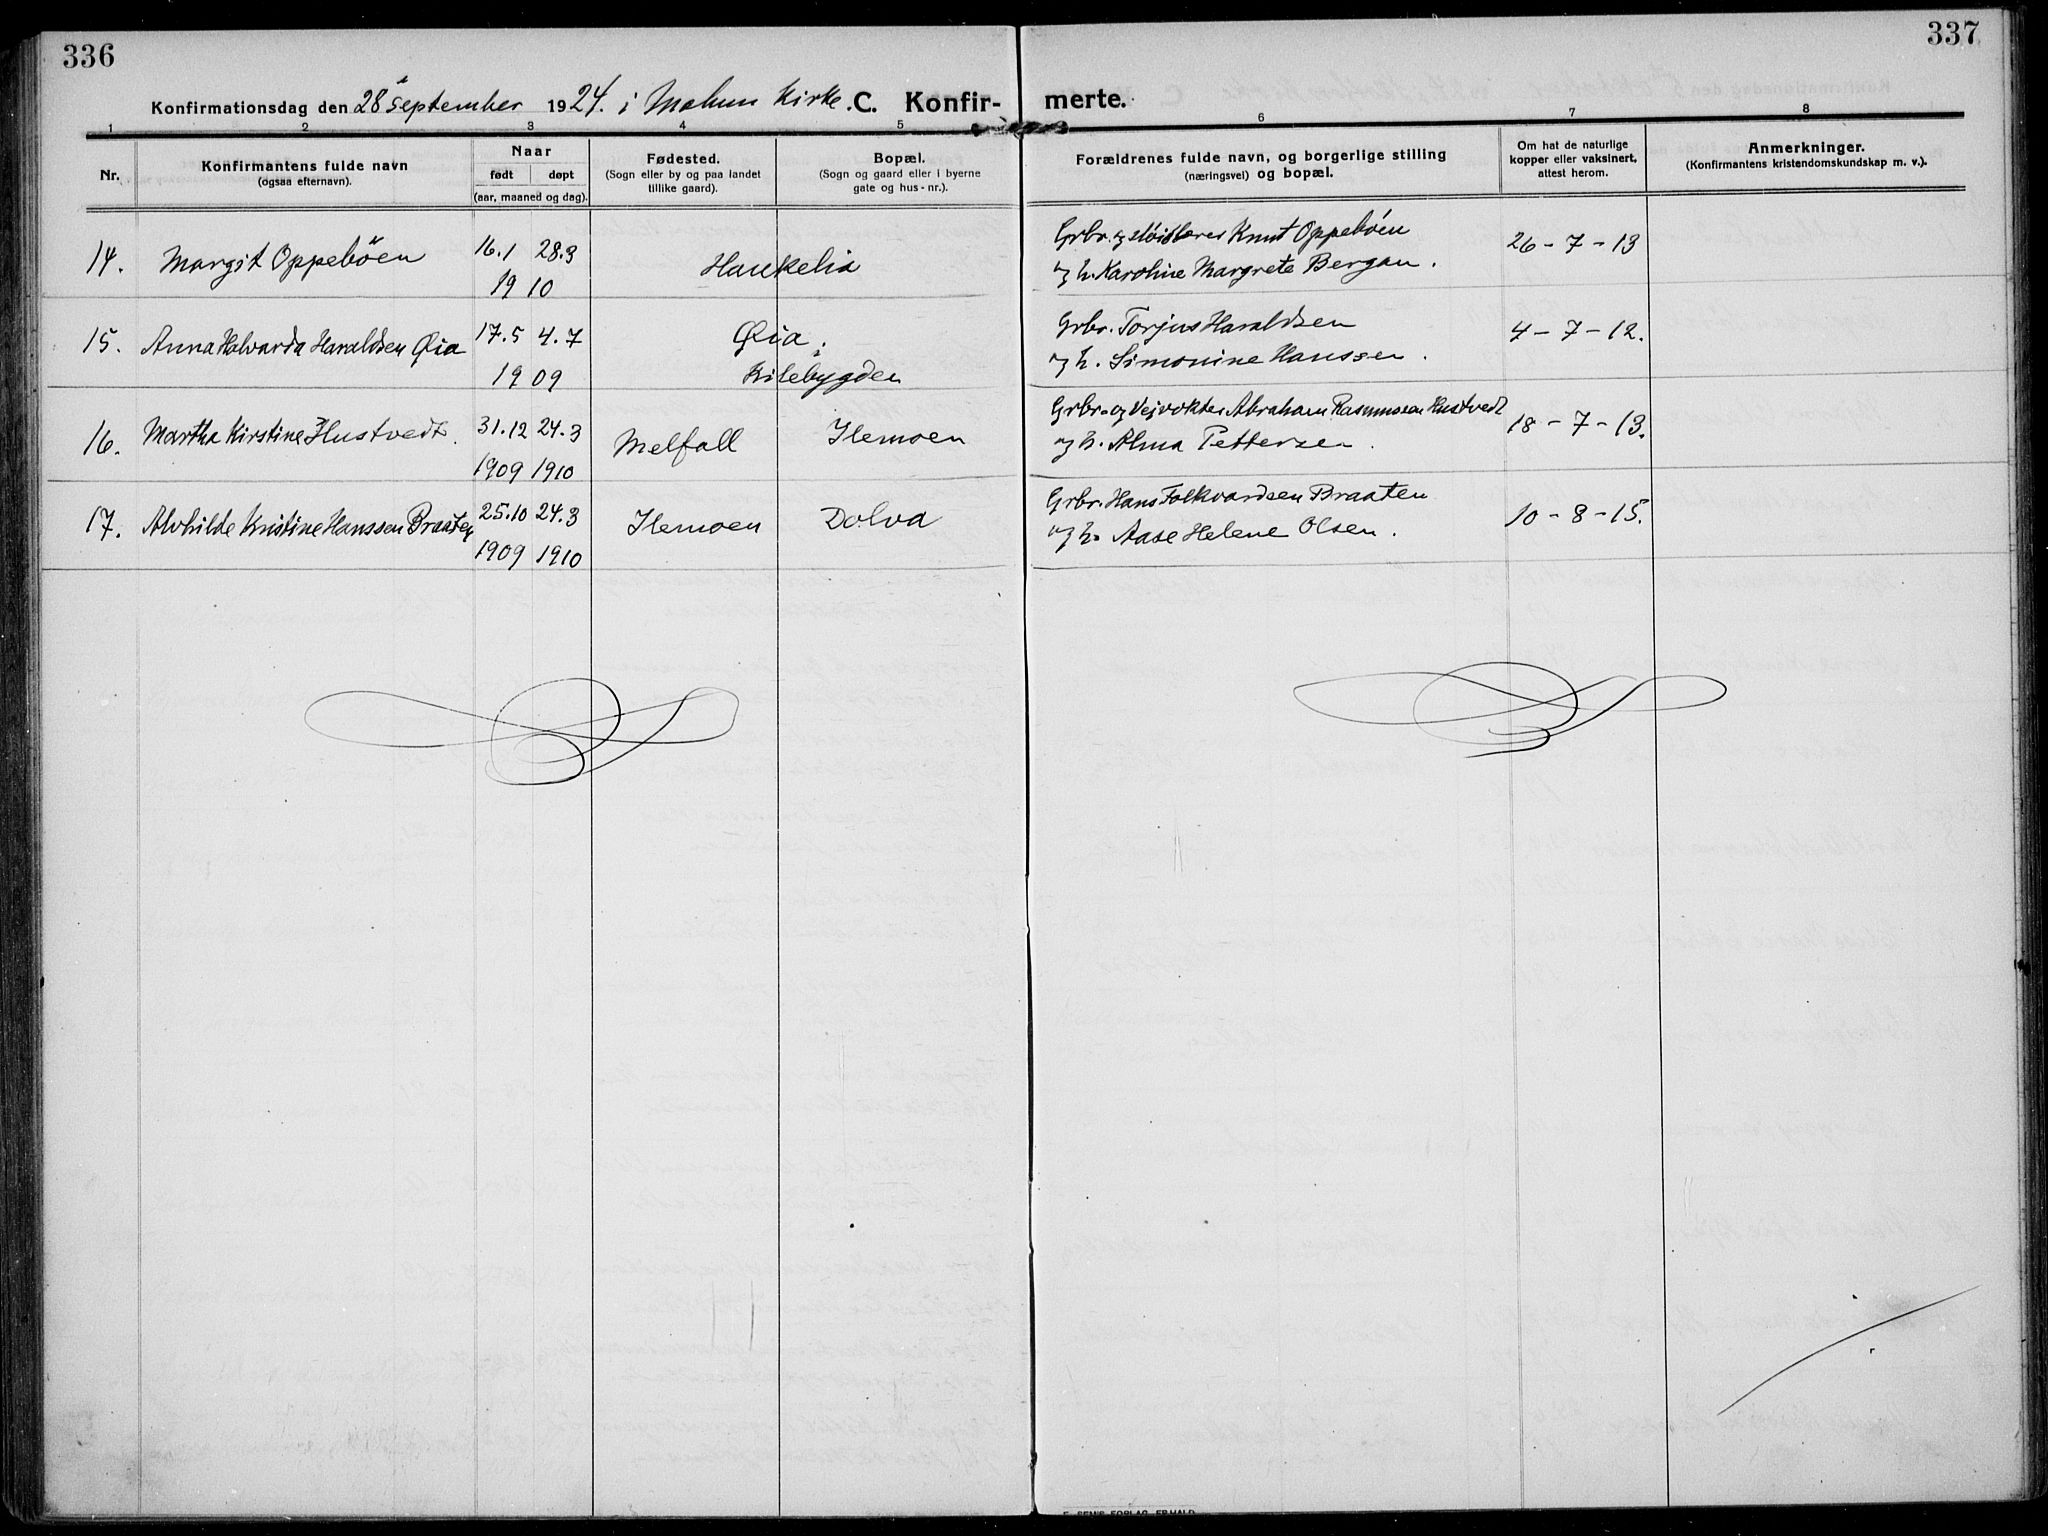 336
337
Konfirmationsdag den 28 september 1924. i Melum Kirke. C. Konfir-
merte.
1 2 3 4 5 6 7 8
Nr.
Konfirmantens fulde navn
(ogsaa efternavn).
Naar
født døpt
(aar, maaned og dag).
Fødested.
(Sogn eller by og paa landet
tillike gaard).
Bopæl.
(Sogn og gaard eller i byerne
gate og hus-nr.).
Forældrenes fulde navn, og borgerlige stilling
(næringsvei) og bopæl.
Om hat de naturlige
kopper eller vaksinert,
attest herom.
Anmerkninger.
(Konfirmantens kristendomskundskap m. v.).
14. Margit Oppeböen 16.1 28.3 Haukelia Grbr. og Knut Oppeböen 26-7-13
1910 og h. Karoline Margrete Bergan.
15. Anna Halvarda Haraldsen Øia 17.5 4.7 Øia i Grbr. Torjus Haraldsen 4-7-12.
1909 Kilebygden og h. Simonine Hanssen.
16. Martha Kirstine Hustvedt. 31.12 24.3 Melfall Ilemoen Grbr. og Vejvokter Abraham Rasmussen Hustvedt 18-7-13.
1909 1910 og h. Alma Pettersen.
17. Alvhilde Kristine Hanssen Braaten 25.10 24.3 Ilemoen Dolva Grbr. Hans Folkvardsen Braaten 10-8-15.
1909 1910 og h. Aase Helene Olsen.